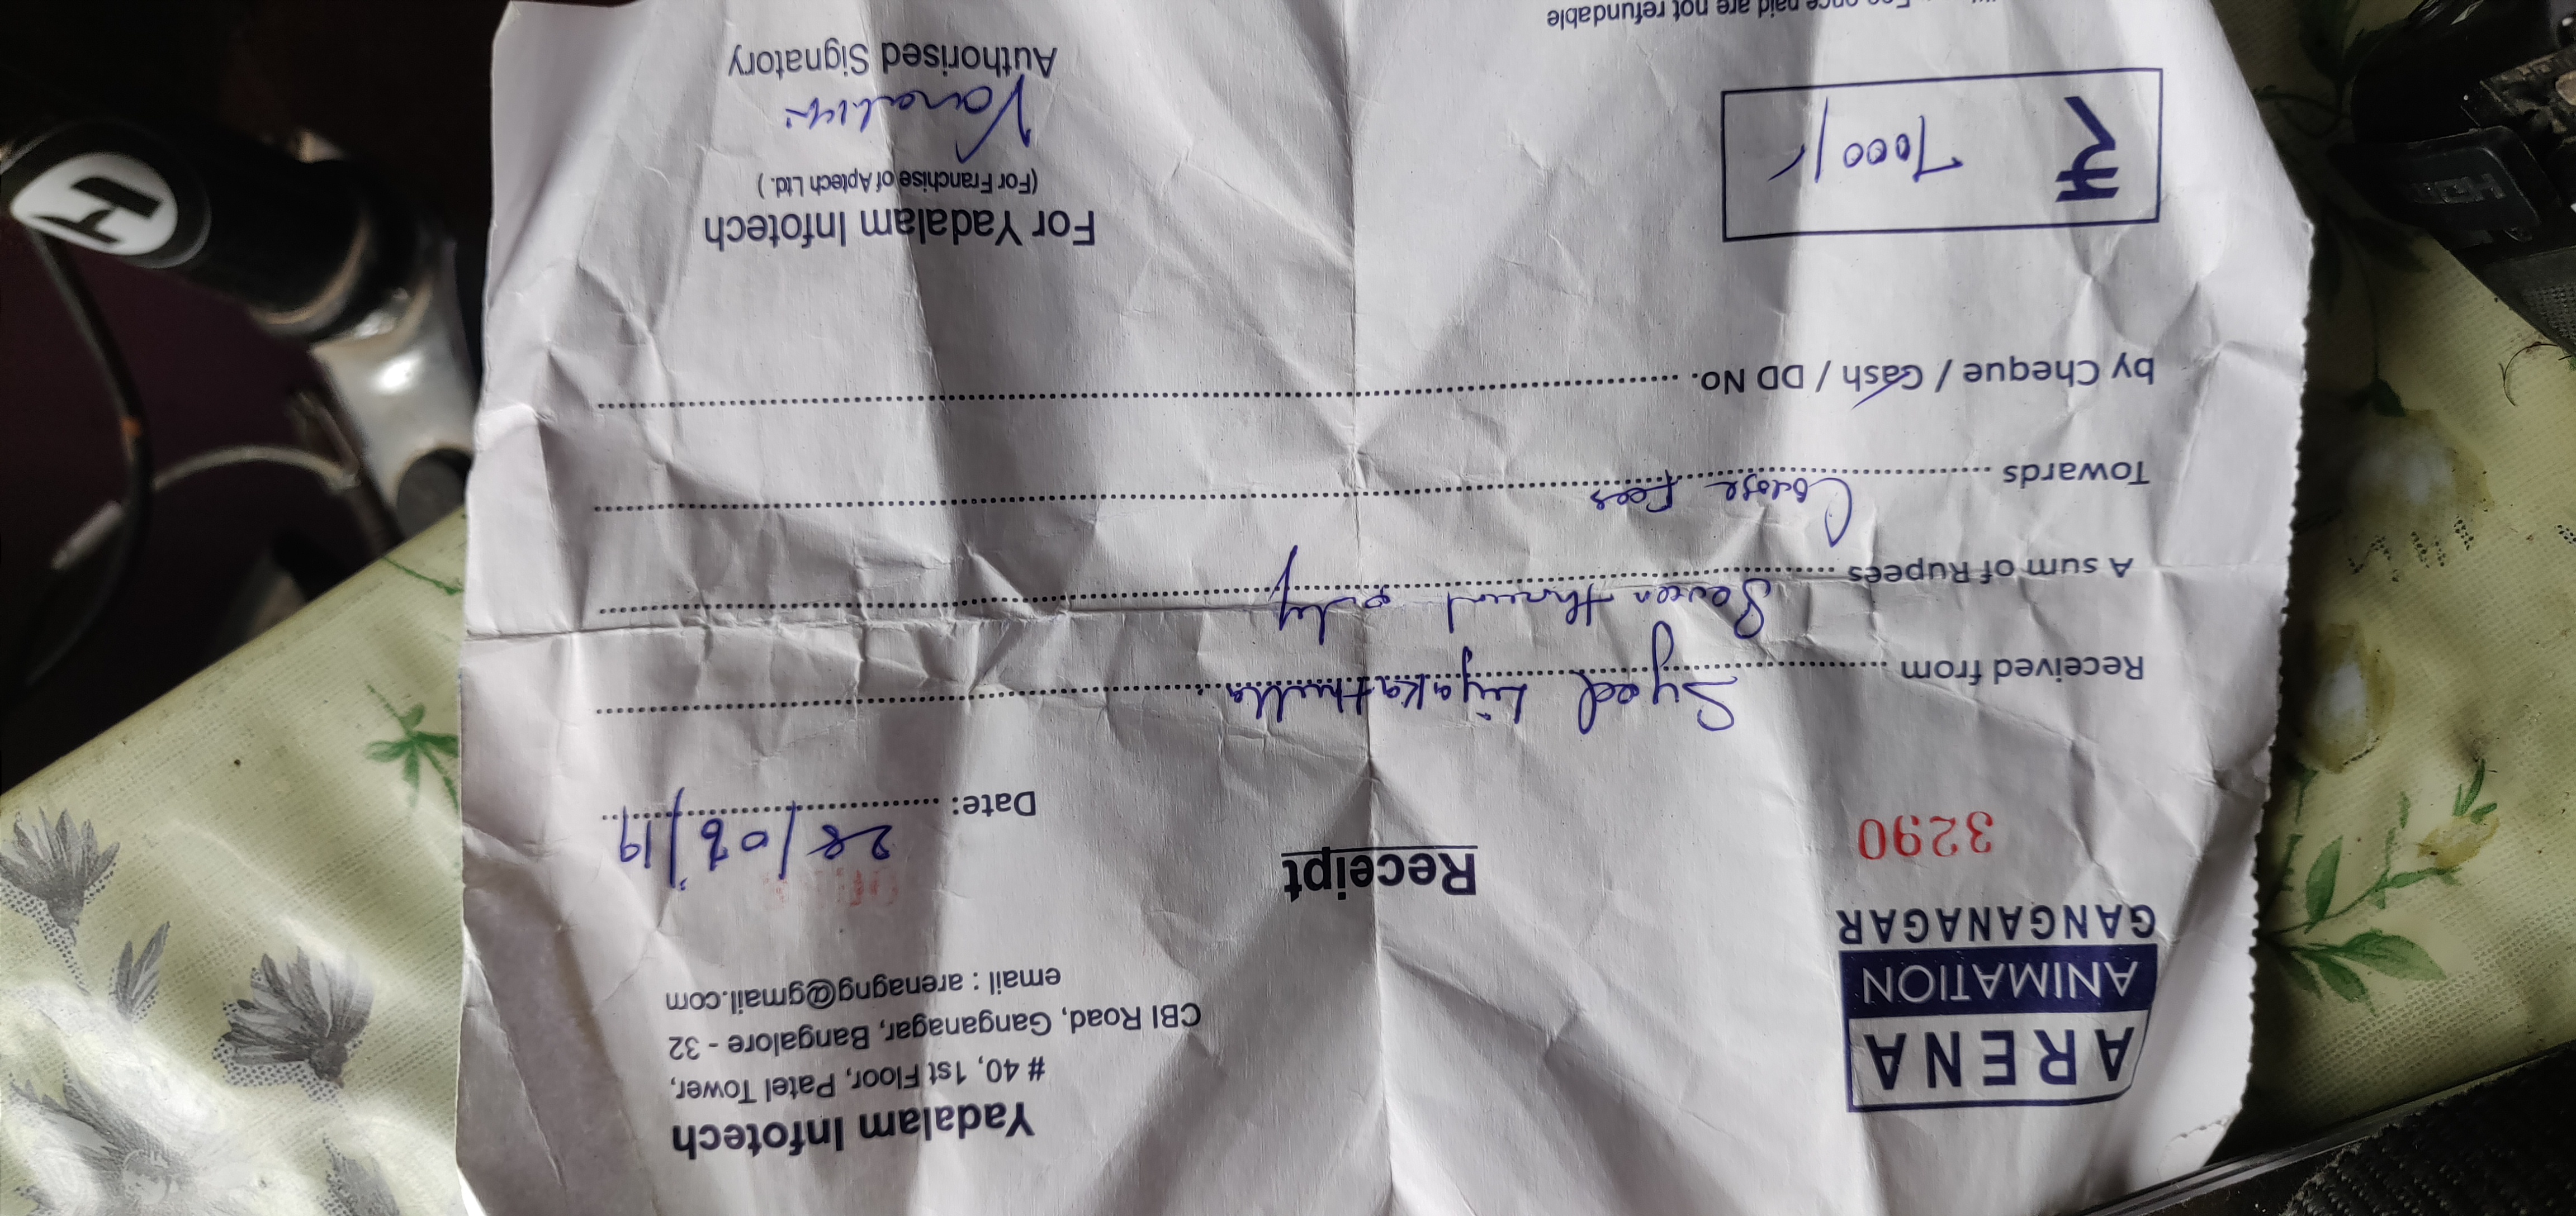 ARENA
ANIMATION
GANGANAGAR
Yadalam Infotech
# 40, 1st Floor, Patel Tower,
CBI Road, Ganganagar, Bangalore - 32
email : arenagng@gmail.com
3290
Receipt
Date: 28/06/19
Received from Syed Liyakathulla
A sum of Rupees Seven thousand only
Towards Course Fees
by Cheque / Cash / DD No.
₹ 7000/-
For Yadalam Infotech
(For Franchise of Aptech Ltd.)
Authorised Signatory
once paid are not refundable
H